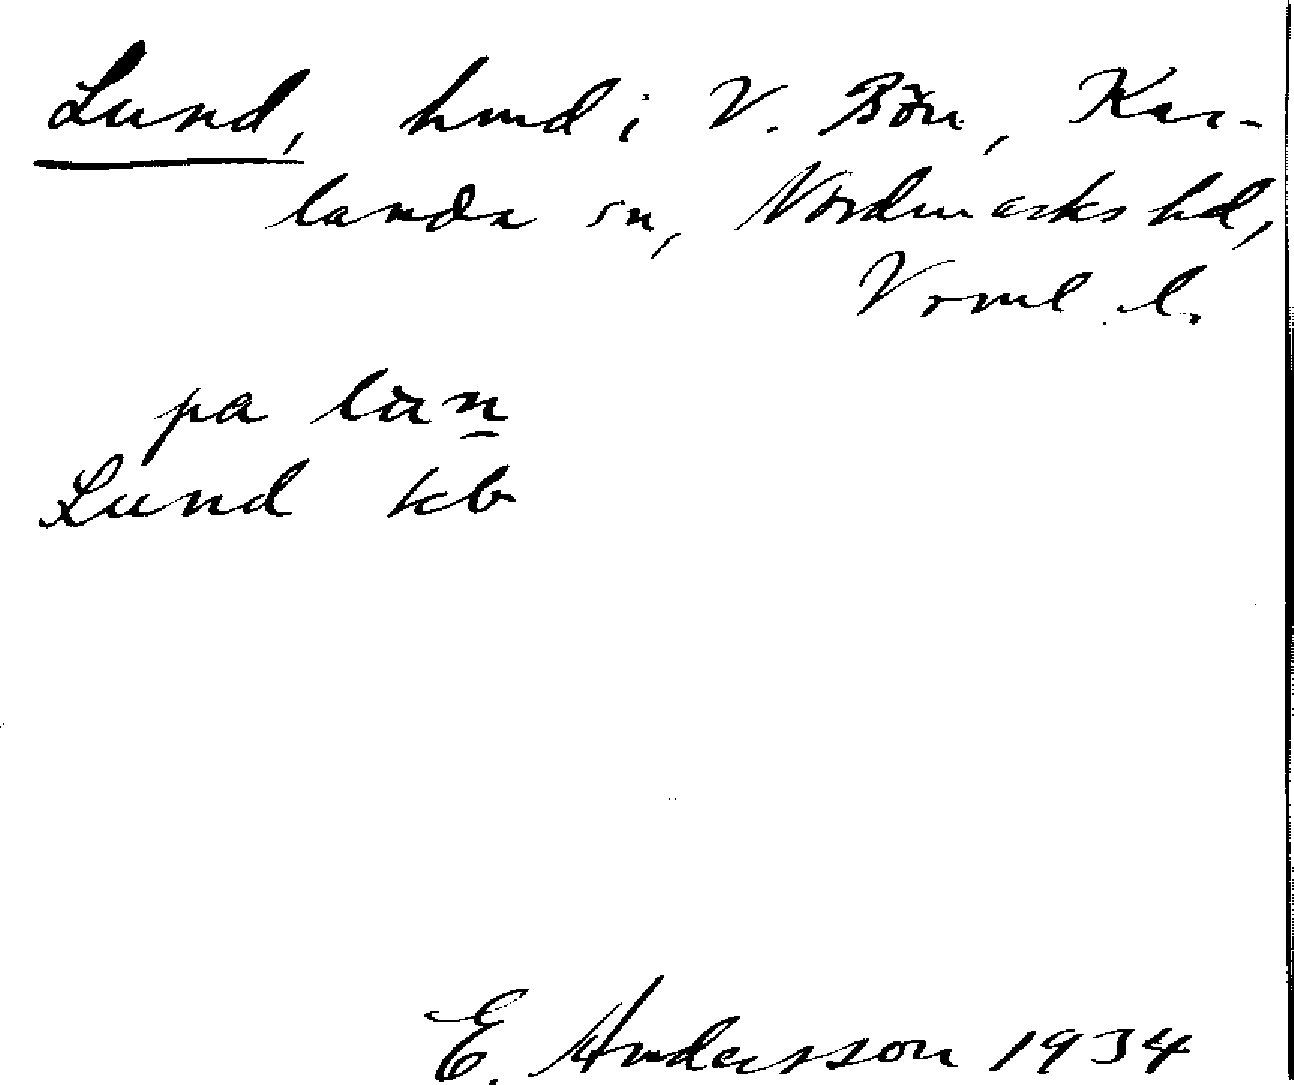 Lund, hmd i V. Bön, Kar-
landa sn, Nordmarks hd,
Vrml. l.
pa lun̲
Lund kb
E. Andersson 1934